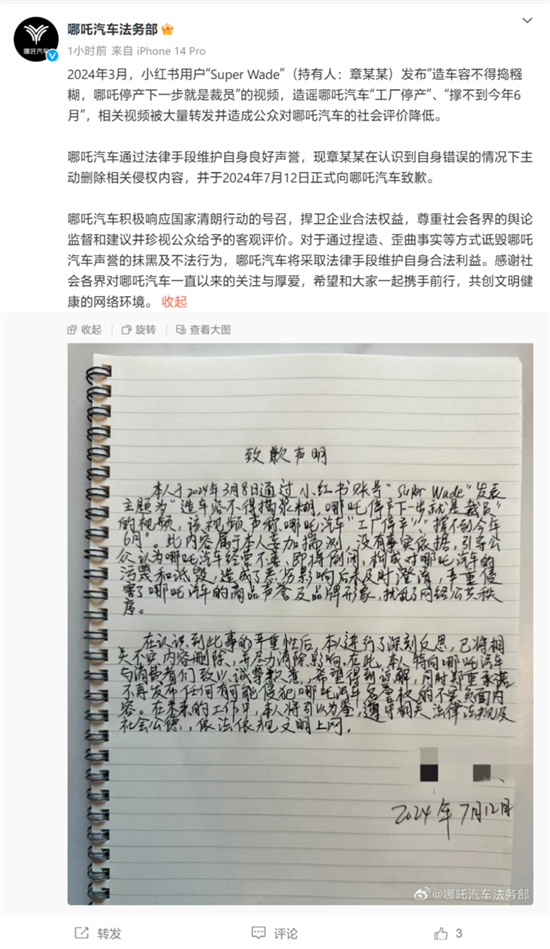 哪吒汽车法务部
1小时前 来自 iPhone 14 Pro
哪吒汽车
2024年3月，小红书用户“Super Wade”（持有人：章某某）发布“造车容不得捣糨
糊，哪吒停产下一步就是裁员”的视频，造谣哪吒汽车“工厂停产”、“撑不到今年6
月”，相关视频被大量转发并造成公众对哪吒汽车的社会评价降低。
哪吒汽车通过法律手段维护自身良好声誉，现章某某在认识到自身错误的情况下主
动删除相关侵权内容，并于2024年7月12日正式向哪吒汽车致歉。
哪吒汽车积极响应国家清朗行动的号召，捍卫企业合法权益，尊重社会各界的舆论
监督和建议并珍视公众给予的客观评价。对于通过捏造、歪曲事实等方式诋毁哪吒
汽车声誉的抹黑及不法行为，哪吒汽车将采取法律手段维护自身合法利益。感谢社
会各界对哪吒汽车一直以来的关注与厚爱，希望和大家一起携手前行，共创文明健
康的网络环境。 收起
收起 旋转 查看大图
致歉声明
本人于2024年3月8日通过小红书账号“Super Wade”发表
主题为“造车容不得捣浆糊，哪吒停产下一步就是裁员”
的视频，该视频声称哪吒汽车“工厂停产”，“撑不到今年
6月”。此内容属于本人妄加揣测，没有事实依据，引导公
众认为哪吒汽车经营不善、即将倒闭，构成对哪吒汽车的
污蔑和诋毁，造成了恶劣影响后未及时澄清，严重侵
害了哪吒汽车的商品声誉及品牌形象，扰乱了网络公共秩
序。
在认识到此事的严重性后，本人进行了深刻反思，已将相
关不实内容删除，并尽力消除影响。在此，本人特向哪吒汽车
与消费者们致以诚挚歉意，希望得到谅解，同时郑重承诺
不再发布任何有可能侵犯哪吒汽车名誉权的不实负面内
容。在未来的工作中，本人将引以为鉴，遵守相关法律法规及
社会公德，依法依规文明上网。
2024年7月12日
@哪吒汽车法务部
转发 评论 3